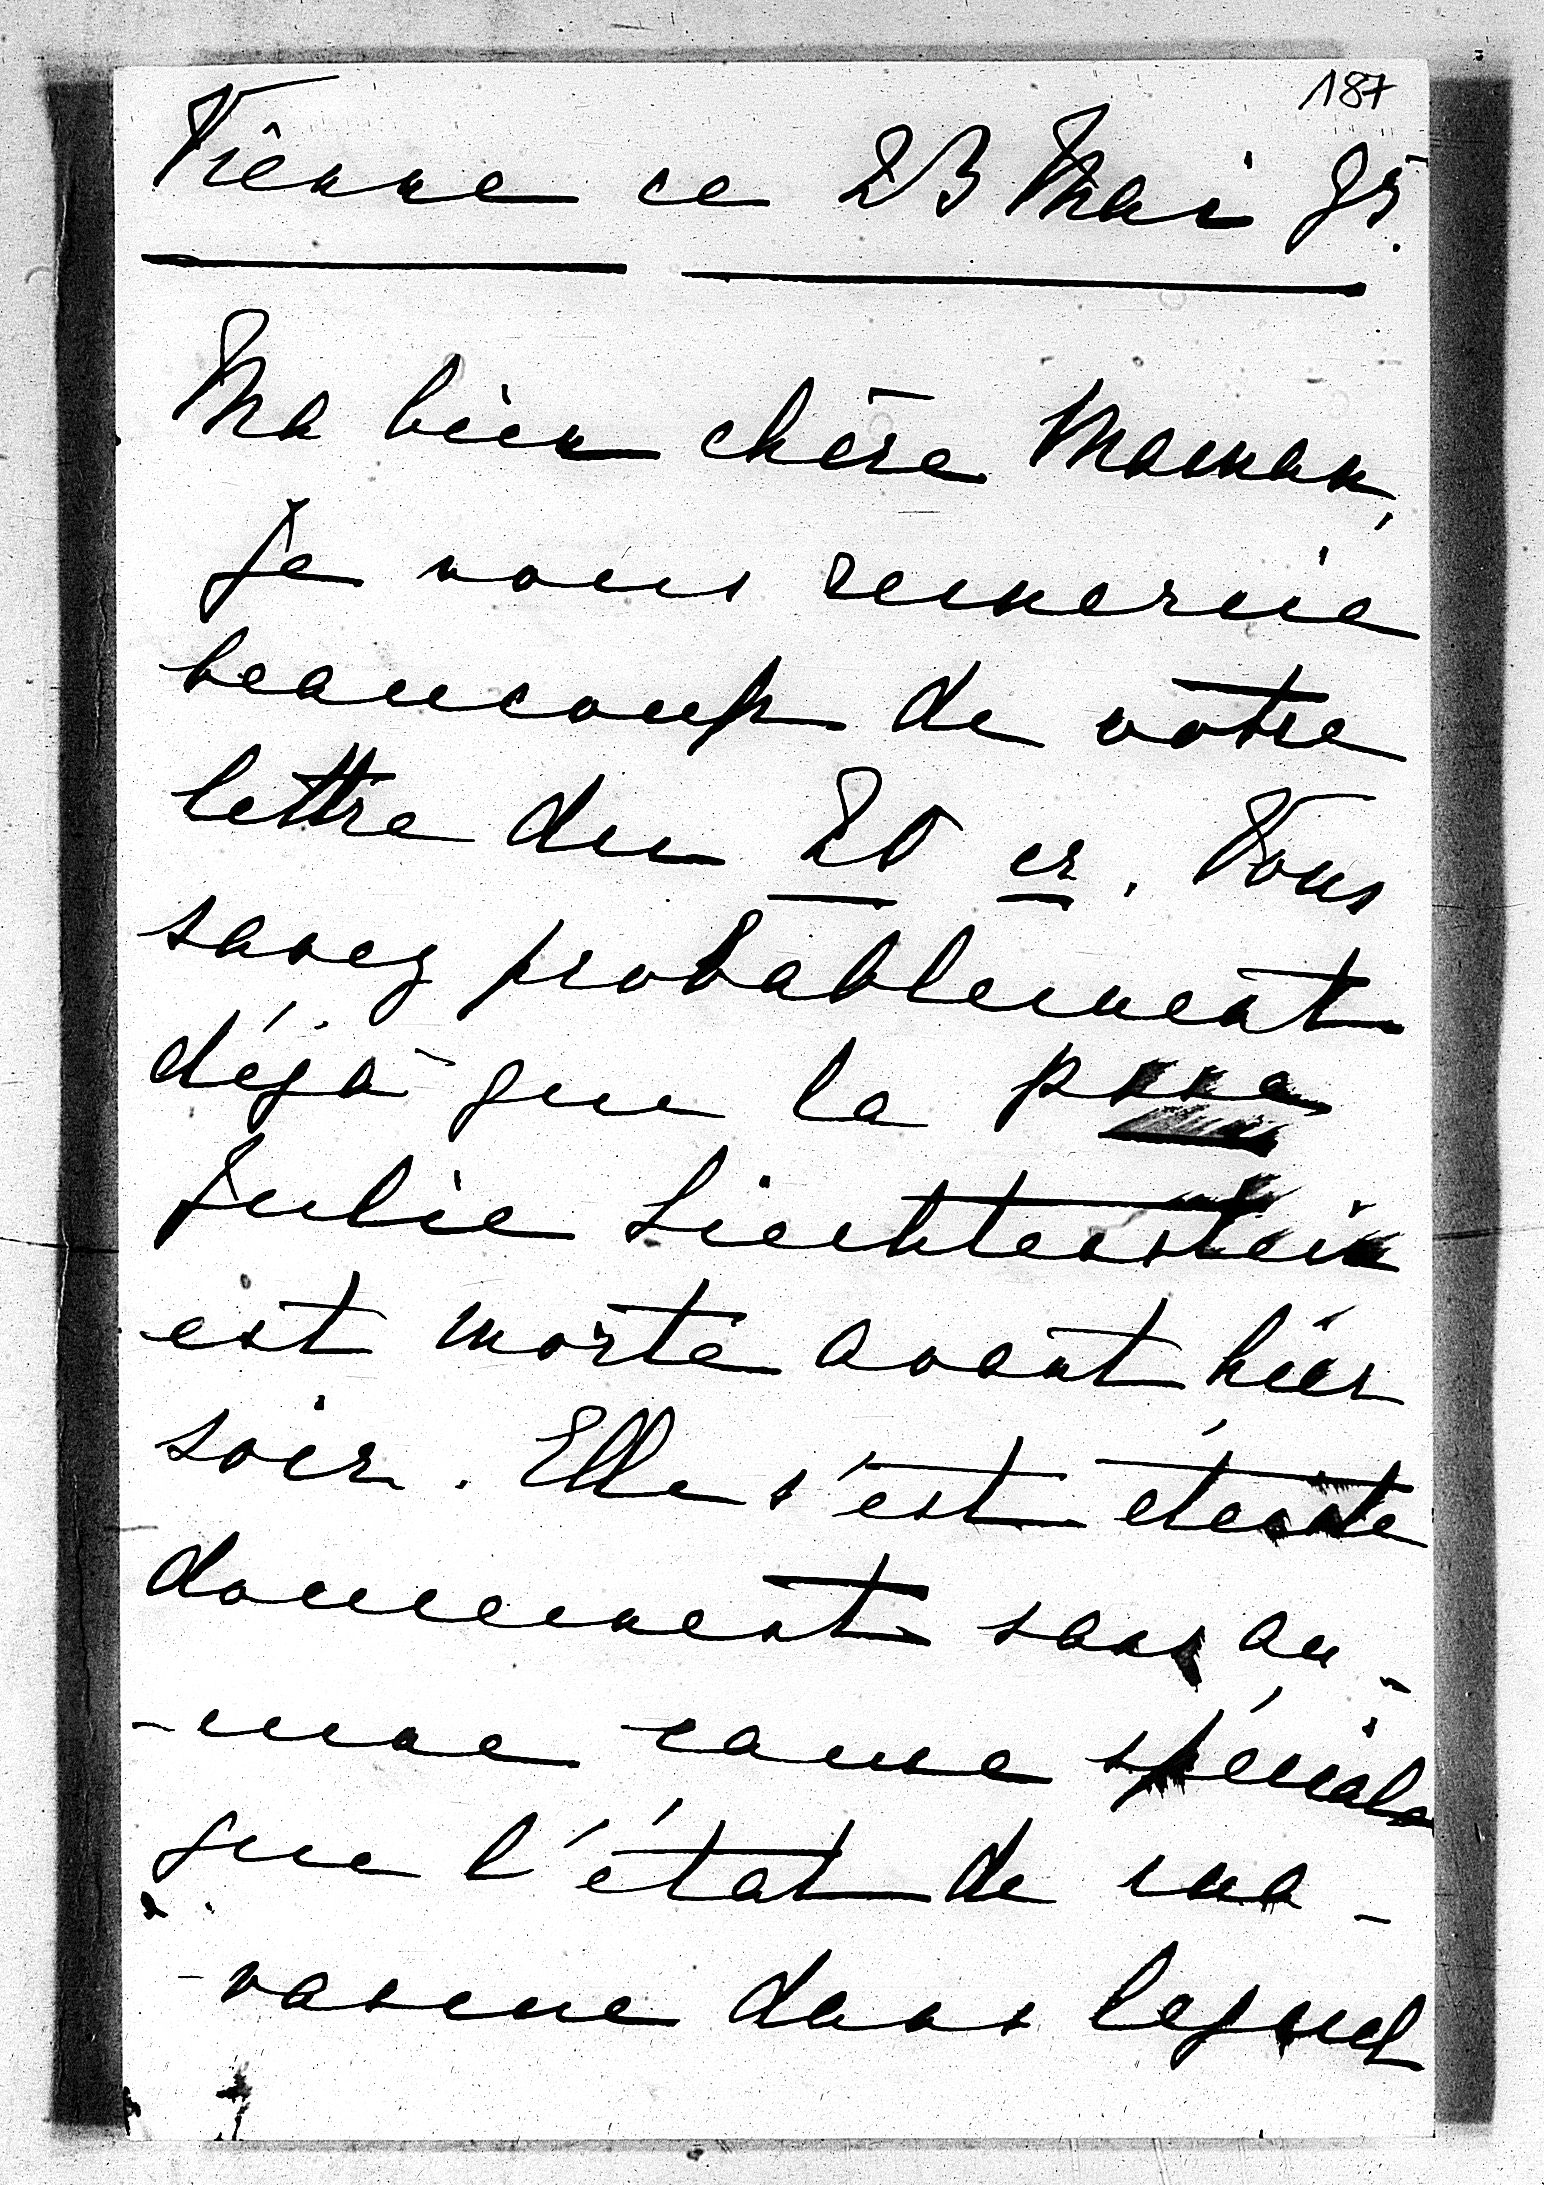 187
Vienne ce 23 Mai 85.
Ma bien chère Maman,
Je vous remercie
beaucoup de votre
lettre du 20 cr. Vous
savez probablement
déjà que la psse
Julie Liechtenstein
est morte avant hier
soir. Elle s'est éteinte
doucement sans au-
-cune cause spéciale
que l'état de ma-
-rasme dans lequel